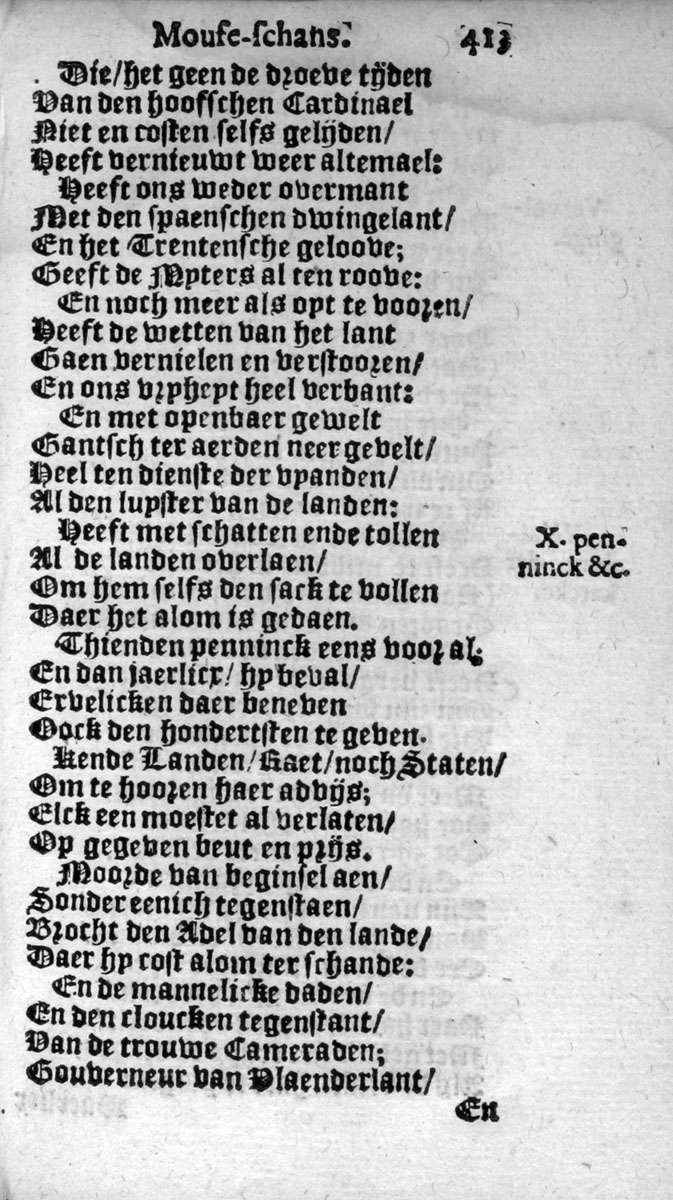 Moufe-ſchans. 413
Die/het geen de droeve tijden
Van den hoofſchen Cardinael
Niet en coſten ſelfs gelijden/
Heeft vernieuwt weer altemael:
Heeft ons weder overmant
Met den ſpaenſchen dwingelant/
En het Trentenſche geloove;
Geeft de Myters al ten roove:
En noch meer als opt te vooren/
Heeft de wetten van het lant
Gaen vernielen en verſtooren/
En ons vryheyt heel verbant:
En met openbaer gewelt
Gantſch ter aerden neer gevelt/
Heel ten dienſte der vyanden/
Al den luyſter van de landen:
Heeft met ſchatten ende tollen
Al de landen overlaen/
Om hem ſelfs den ſack te vollen
Daer het alom is gedaen.
Thienden penninck eens voor al;
En dan jaerlicx/ hy beval/
Ervelicken daer beneven
Oock den hondertſten te geven.
Kende Landen/Raet/noch Staten/
Om te hooren haer advijs;
Elck een moeſtet al verlaten/
Op gegeven beut en prijs.
Moorde van beginſel aen/
Sonder eenich tegenſtaen/
Brocht den Adel van den lande/
Daer hy coſt alom ter ſchande:
En de mannelicke daden/
En den cloucken tegenſtant/
Van de trouwe Cameraden;
Gouverneur van Vlaenderlant/
En
X. pen-
ninck &c.